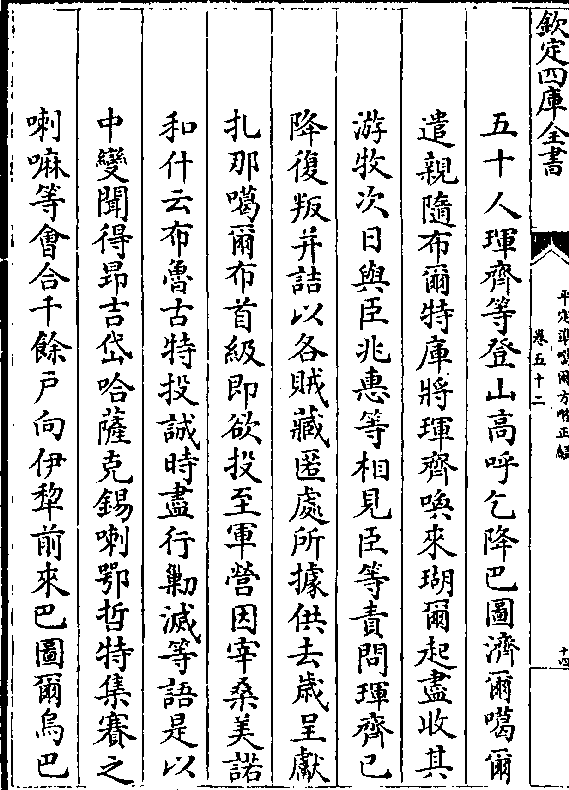 欽定四庫全書
平定準噶爾方略正編
卷五十二
十四
五十人琿齊等登山高呼乞降巴圖濟爾噶爾
遣親隨布爾特庫將琿齊喚來瑚爾起盡收其
游牧次日與臣兆惠等相見臣等責問琿齊已
降復叛并詰以各賊藏匿處所據供去歲呈獻
扎那噶爾布首級即欲投至軍營因宰桑美諾
和什云布魯古特投誠時盡行勦滅等語是以
中變聞得昂吉岱哈薩克錫喇鄂哲特集賽之
喇嘛等會合千餘戶向伊犂前來巴圖爾烏巴